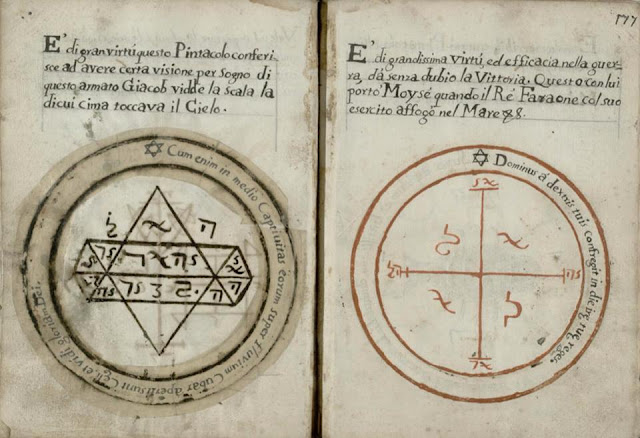 E' di gran virtù questo Pintacolo conferi:
sce ad avere certa visione per Sogno di
questo armato Giacob vidde la scala la
dicui Cima toccava il Cielo.
Cum enim in medio Captiuitas eorum super fluvium Cubar aperti sunt Celi, et vidi gloriam Dei.
177
E' di grandissima virtù, ed efficacia nella guer:
ra, da senza dubio la Vittoria. Questo con lui
portò Moysé quando il Ré Faraone col suo
esercito affogò nel Mare
Dominus á dextris tuis confregit in die irę suę reges.